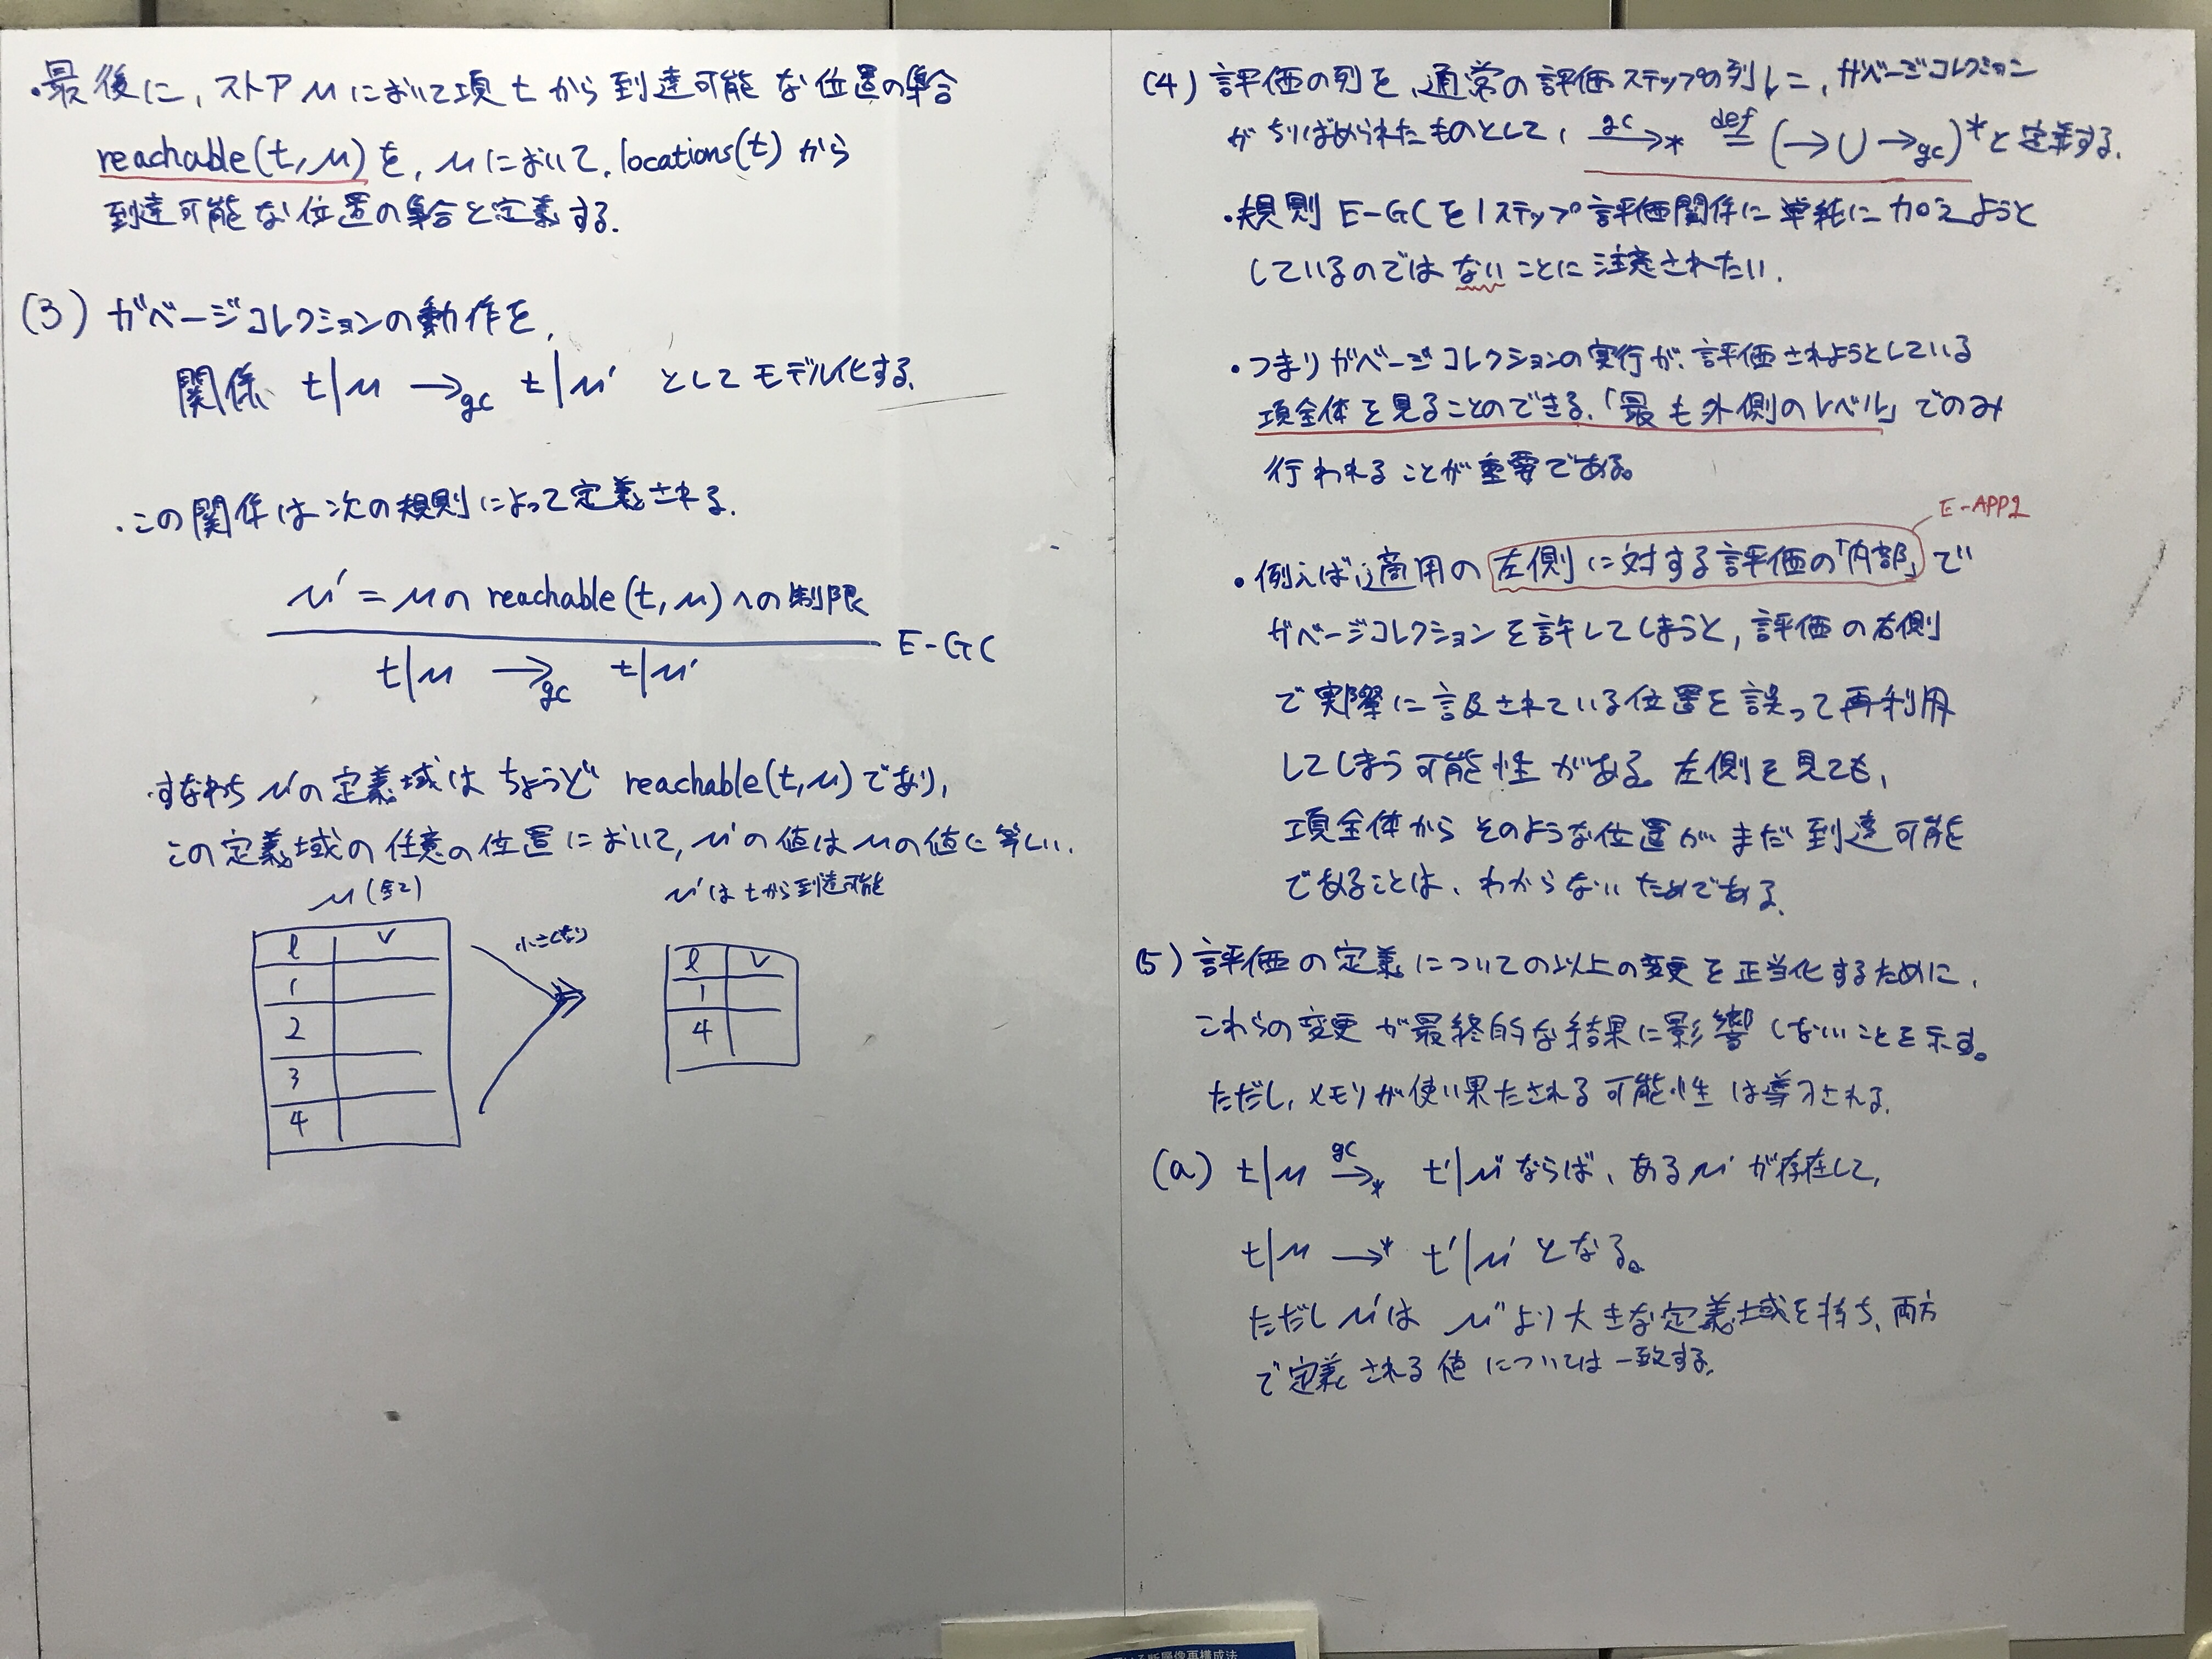 ・最後に、ストアμにおいて項tから到達可能な位置の集合
reachable(t,μ)を、μにおいて、locations(t)から
到達可能な位置の集合と定義する.
(3) ガベージコレクションの動作を、
関係 t|μ →gc t|μ' としてモデル化する.
・この関係は次の規則によって定義される.
μ'=μの reachable(t,μ)への制限
E-GC
t|μ →gc t|μ'
・すなわちμ'の定義域はちょうど reachable(t,μ)であり,
この定義域の任意の位置において,μ'の値はμの値に等しい.
μ'はtから到達可能
小さくなり
l v
1
2
3
4
l v
1
4
(4) 評価の列を、通常の評価ステップの列に、ガベージコレクション
がちりばめられたものとして、 gc→* def= (→∪→gc)* と定義する.
・規則 E-GCを1ステップ評価関係に単純に加えようと
しているのではないことに注意されたい.
・つまりガベージコレクションの実行が、評価されようとしている
項全体を見ることのできる、「最も外側のレベル」でのみ
行われることが重要である。
E-APP1
・例えば、適用の左側に対する評価の「内部」で
ガベージコレクションを許してしまうと,評価の右側
で実際に言及されている位置を誤って再利用
してしまう可能性がある。左側を見ても、
項全体からそのような位置がまだ到達可能
であることは、わからないためである.
(5) 評価の定義についての以上の変更を正当化するために、
これらの変更が最終的な結果に影響しないことを示す。
ただし,メモリが使い果たされる可能性は導入される.
(a) t|μ gc→* t'|μ''ならば、あるμ'が存在して,
t|μ →* t'|μ' となる。
ただしμ'は μ''より大きな定義域を持ち、両方
で定義される値については一致する.